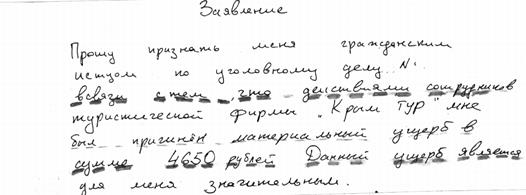 Заявление
Прошу признать меня гражданским
истцом по уголовному делу.. N.
всвязи с тем, что действиями сотрудников
туристической фирмы „Крым Тур" мне
был причинён материальный ущерб в
сумме 4650 рублей Данный ущерб является
для меня значительным.